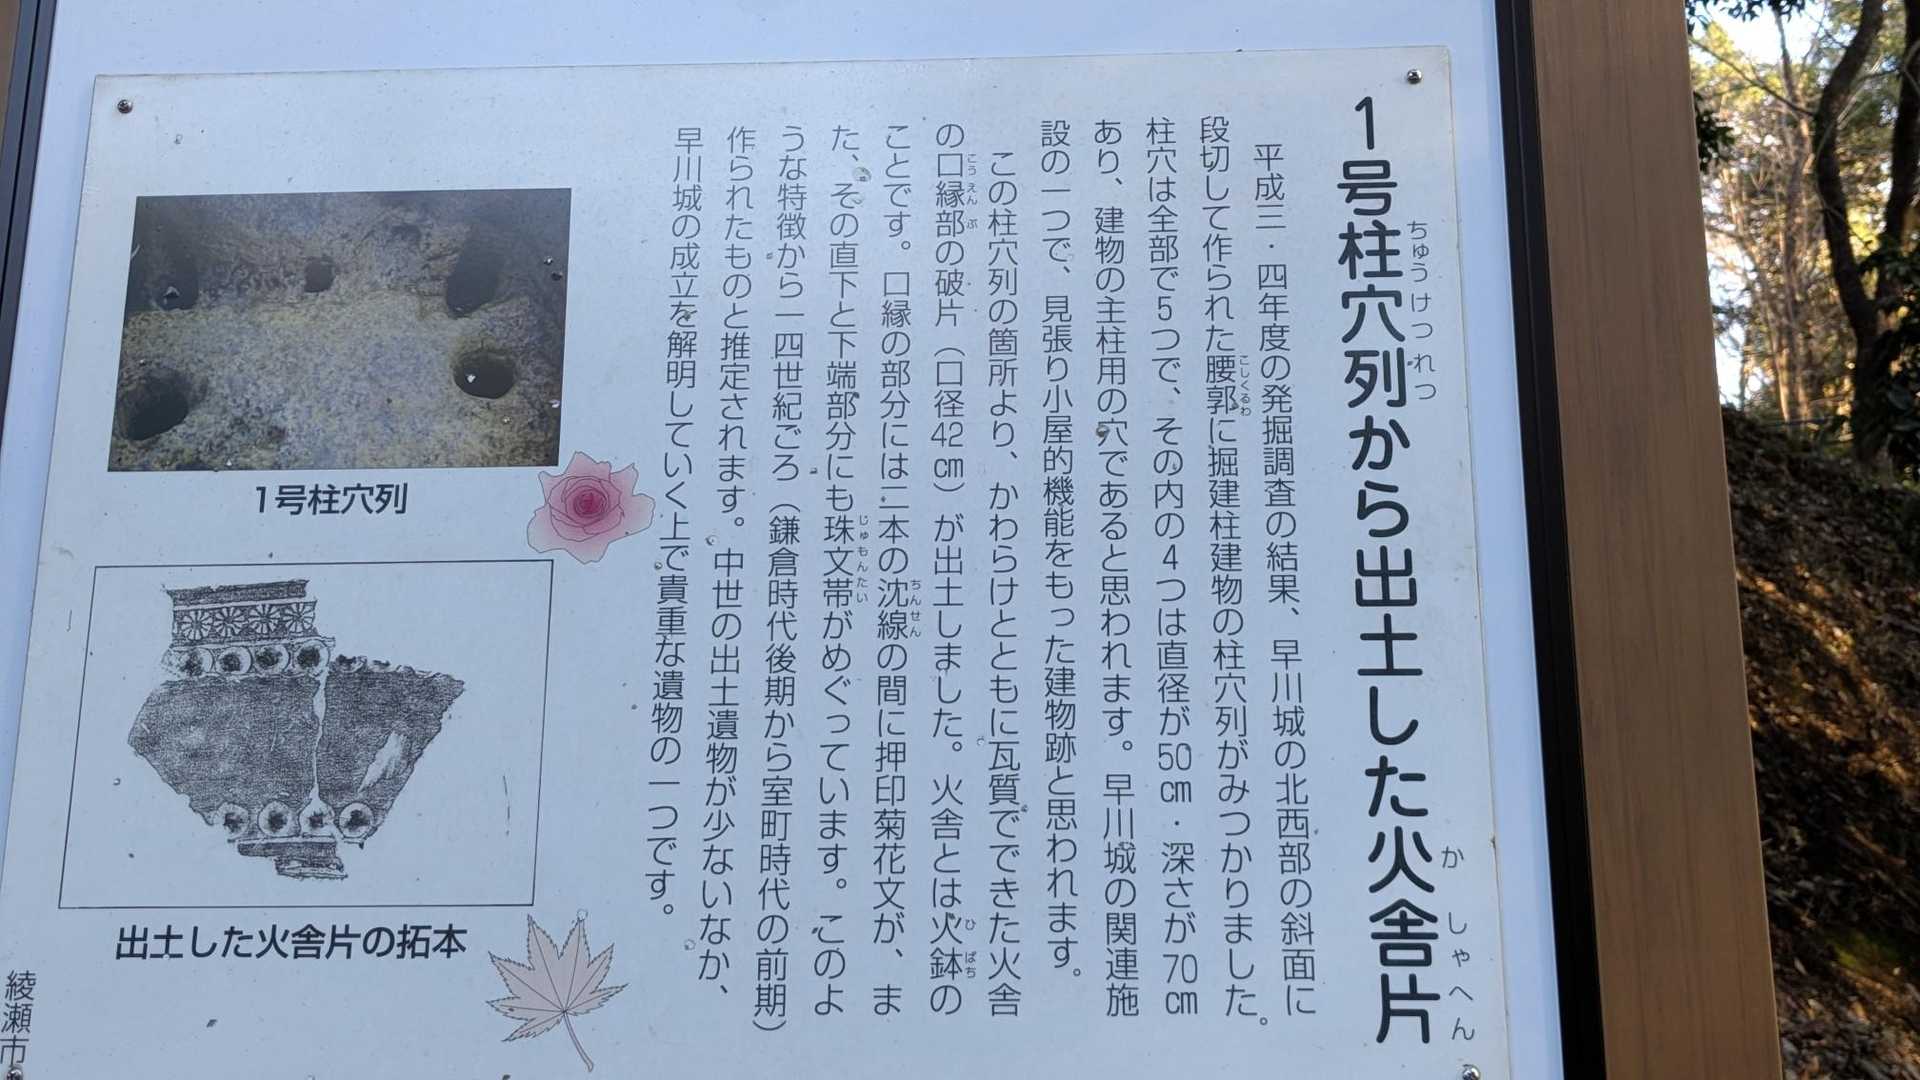 1号柱穴列から出土した火舎片
ちゅうけつれつ
かしゃへん
平成三・四年度の発掘調査の結果、早川城の北西部の斜面に
段切して作られた腰郭に掘建柱建物の柱穴列がみつかりました。
こしくるわ
柱穴は全部で5つで、その内の4つは直径が50㎝・深さが70㎝
あり、建物の主柱用の穴であると思われます。早川城の関連施
設の一つで、見張り小屋的機能をもった建物跡と思われます。
この柱穴列の箇所より、かわらけとともに瓦質でできた火舎
の口縁部の破片（口径42㎝）が出土しました。火舎とは火鉢の
こうえんぶ
ひばち
ことです。口縁の部分には二本の沈線の間に押印菊花文が、ま
ちんせん
た、その直下と下端部分にも珠文帯がめぐっています。このよ
じゅもんたい
うな特徴から一四世紀ごろ（鎌倉時代後期から室町時代の前期）
作られたものと推定されます。中世の出土遺物が少ないなか、
早川城の成立を解明していく上で貴重な遺物の一つです。
1号柱穴列
出土した火舎片の拓本
綾瀬市